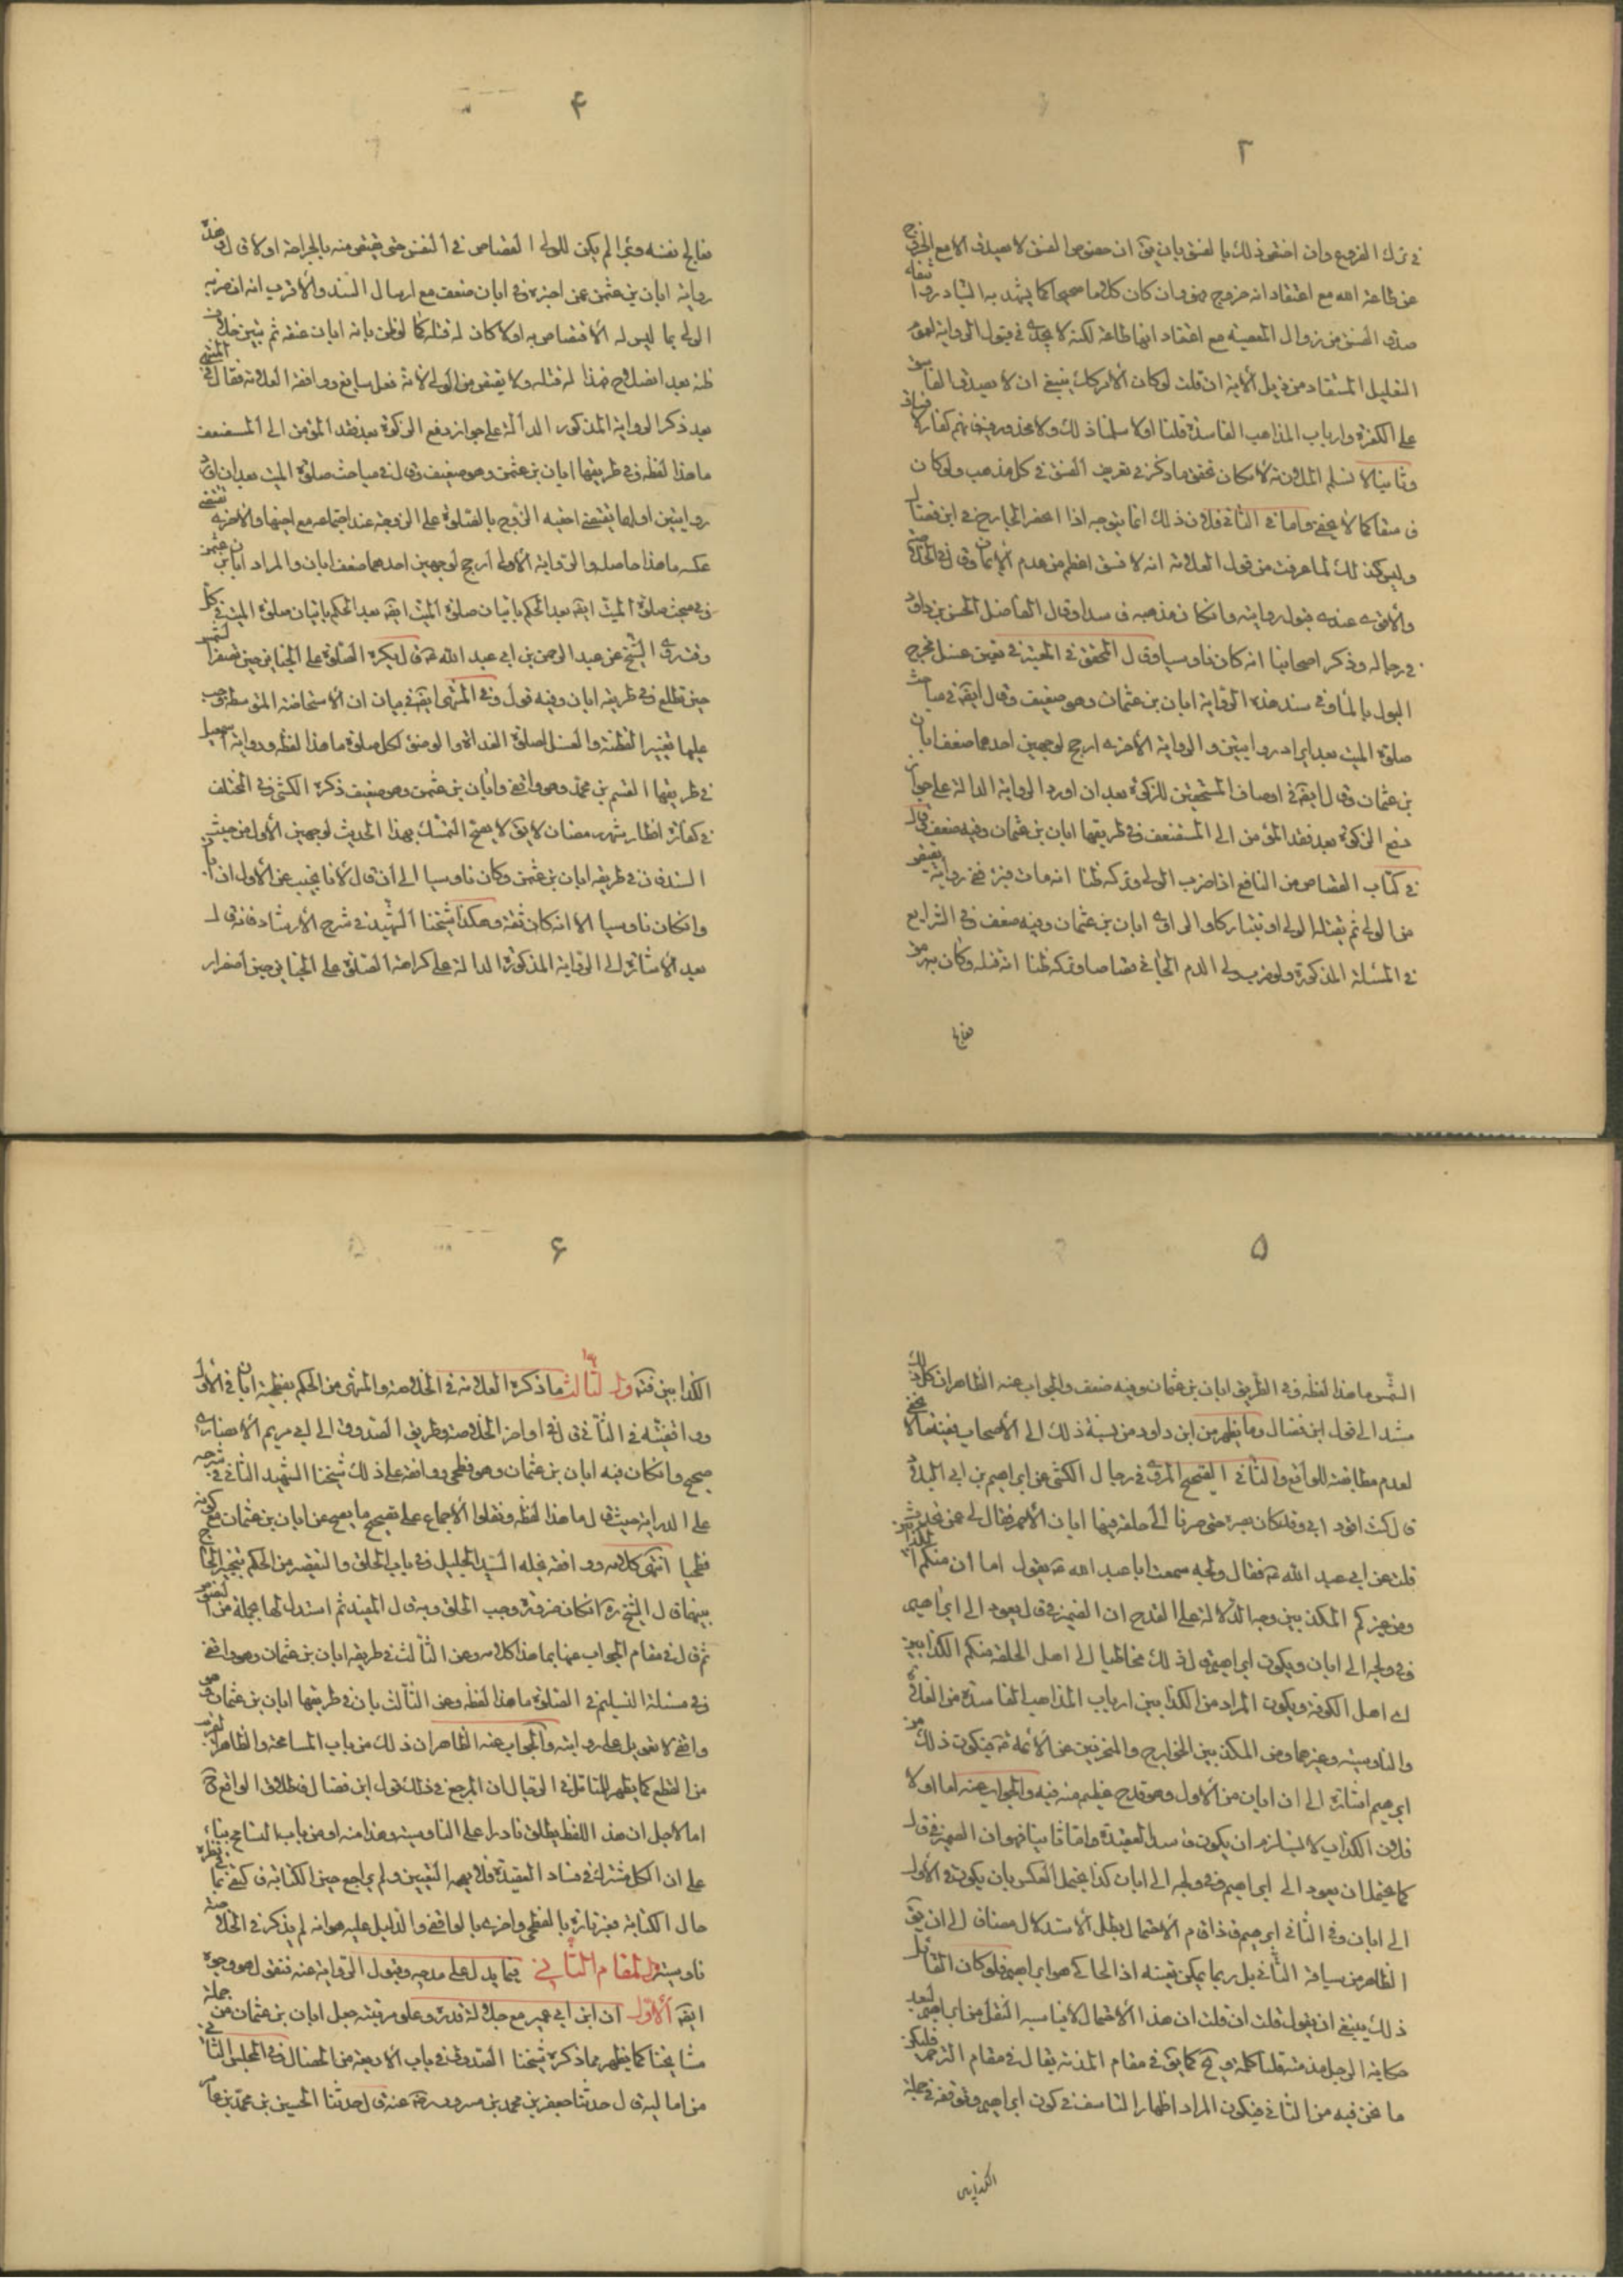 ٣
في ترك الفروع وان اختص ذلك بالفسق بان يق ان خصوص الفسق لا يصدق الا مع الخروج
عن طاعة الله مع اعتقاد انه خروج وان كان كلاما صحيحا كما يشهد به التبادر و
صدق الفسق من زوال المعصية مع اعتقاد انها طاعة لكنه لا يجدى في قبول الرواية لعموم
التعليل المستفاد من ذيل الاية ان قلت لو كان الامر كك ينبغي ان لا يصدق الفاسق
على الكفرة وارباب المذاهب الفاسدة قلنا اولا سلمنا ذلك ولا محذور فيه فانهم كفار
وثانيا لا نسلم الملازمة لامكان تحقق ما ذكر في تعريف الفسق في كل مذهب ولو كان
فاسقا كما لا يخفى واما في الثاني فلان ذلك انما يتوجه اذا انحصر الجارح في ابن فضال
وليس كذلك لما عرفت من قول العلامة انه لا فسق اعظم من عدم الايمان وقال في الخلاصة
والاقوى عندى قبول روايته وان كان مذهبه فاسدا وقال الفاضل الحسن بن داود
في رجاله وذكر اصحابنا انه كان ناووسيا وقال المحقق في المعتبر في تعيين غسل مخرج
البول بالماء وفي سند هذه الرواية ابان بن عثمان وهو ضعيف وقال ايضه في مباحث
صلوة الميت بعد ايراد روايتين والرواية الاخرى ارجح لوجهين احدهما ضعف ابان
بن عثمان وقال ايضه في اوصاف المستحقين للزكوة بعد ان اورد الرواية الدالة على جواز
دفع الزكوة بعد فقد المؤمن الى المستضعف في طريقها ابان بن عثمان وفيه ضعف وقال
في كتاب القصاص من النافع اذا ضرب الولى وتركه ظنا انه مات فبرئ ففي رواية يقتص
من الولي ثم يقتله الولي او يتتاركا والراوى ابان بن عثمان وفيه ضعف وفي الشرايع
في المسئلة المذكورة ولو ضرب ولي الدم الجاني قصاصا وتركه ظنا انه قتله وكان به رمق
فعالج
۴
فعالج نفسه وبرئ لم يكن للولي القصاص في النفس حتى يقتص منه بالجراحة اولا وهذه
رواية ابان بن عثمن عمن اخبره وفي ابان ضعف مع ارسال السند والاقرب انه ان ضربه
الولي بما ليس له الاقتصاص به اولا كان له قتله كما لو ظن بانه ابان عنقه ثم تبين خلاف
ظنه بعد انصلاحه فهذا له قتله ولا يقتص من الولي لانه فعل سايغ ووافقه العلامة فقال في المنتهى
بعد ذكر الرواية المذكورة الدالة على جواز دفع الزكوة بعد فقد المؤمن الى المستضعف
ما هذا لفظه وفي طريقها ابان بن عثمن وهو ضعيف وقال في مباحث صلوة الميت بعد ان اورد
روايتين اولهما يقتضى احقية الزوج بالصلوة على الزوجة عند اجتماعه مع اخيها والاخرى تقتضي
عكسه ما هذا حاصله والرواية الاولى ارجح لوجهين احدهما ضعف ابان والمراد ابان بن عثمن
وفي مبحث صلوة الميت ايضه بعد الحكم باتيان صلوة الميت ايضه بعد الحكم باتيان صلوة الميت في كل
وقت روى الشيخ عن عبد الرحمن بن ابي عبد الله عه قال يكره الصلوة على الجنايز حين تصفر الشمس
حين تطلع وفي طريقه ابان وفيه قول وفي المنتهى ايضه في بيان ان الاستحاضة المتوسطة وجب
عليها تغيير القطنة والغسل لصلوة الغداة والوضوء لكل صلوة ما هذا لفظه ورواية اسمعيل
في طريقها القسم بن محمد وهو واقفي وابان بن عثمن وهو ضعيف ذكره الكشي وفي المختلف
في كفارة افطار شهر رمضان لا يق لا يصح التمسك بهذا الحديث لوجهين الاول من حيث
السند فان في طريقه ابان بن عثمن وكان ناووسيا الى ان قال لانا نجيب عن الاول ان ابان
وان كان ناووسيا الا انه كان ثقة وهكذا شيخنا الشهيد في شرح الارشاد فانه قال
بعد الاشارة الى الرواية المذكورة الدالة على كراهة الصلوة على الجنايز حين اصفرار
۵
الشمس ما هذا لفظه وفي الطريق ابان بن عثمان وفيه ضعف والجواب عنه الظاهر ان كل ذلك
مستند الى قول ابن فضال وما يظهر من ابن داود من نسبة ذلك الى الاصحاب ففيه ما لا يخفى
لعدم مطابقته للواقع والثاني الصحيح المروى في رجال الكشي عن ابراهيم بن ابي البلاد
قال كنت اقود ابي وقد كان كف بصره حتى صرنا الى حلقة فيها ابان الاحمر فقال لي عمن تحدث
قلت عن ابي عبد الله عه فقال ويحه سمعت ابا عبد الله عه يقول اما ان منكم الكذابين
ومن غيركم المكذبين وجه الدلالة على القدح ان الضمير في قال يعود الى ابراهيم
وفي ويحه الى ابان ويكون ابراهيم قال ذلك مخاطبا الى اهل الحلقة منكم الكذابين
اى اهل الكوفة ويكون المراد من الكذابين ارباب المذاهب الفاسدة من الغلاة
والناووسية وغيرهما ومن المكذبين الخوارج والمنحرفين عن الائمة عه فيكون ذلك من
ابراهيم اشارة الى ان ابان من الاول وهو قدح عظيم منه فيه والجواب عنه اما اولا
فلان الكذاب لا يستلزم ان يكون فاسد العقيدة واما ثانيا فهو ان الضمير في قال
كما يحتمل ان يعود الى ابراهيم وفي ويحه الى ابان كذا يحتمل العكس بان يكون في الاول
الى ابان وفي الثاني ابراهيم فاذا قام الاحتمال بطل الاستدلال مضافا الى ان يق
الظاهر من سياقه الثاني بل ربما يمكن تعيينه اذ الحاكي هو ابراهيم فلو كان القائل
ذلك ينبغي ان يقول قلت ان قلت ان هذا الاحتمال لا يناسبه النقل من ابراهيم لبعد
حكاية الرجل مذمته قلنا كلمة ويح كما يق في مقام المذمة يقال في مقام الترحم فليكن
ما نحن فيه من الثاني فيكون المراد اظهار التاسف في كون ابراهيم وقوفه في جملة
الكذابين
۶
الكذابين فتدبر الثالث ما ذكره العلامة في الخلاصة والمنتهى من الحكم بفطحية ابان في الاول
وواقفيته في الثاني قال في اواخر الخلاصة وطريق الصدوق الى ابي مريم الانصارى
صحيح وان كان فيه ابان بن عثمان وهو فطحي ووافقه على ذلك شيخنا الشهيد الثاني في شرحه
على الدراية حيث قال ما هذا لفظه ونقلوا الاجماع على تصحيح ما يصح عن ابان بن عثمان مع كونه
فطحيا انتهى كلامه ووافقه فيه السيد الجليل وفي باب الحلق والتقصير من الحكم بتخيير الحاج
بينهما قال الشيخ ره ان كان صرورة وجب الحلق وبه قال المفيد ثم استدل لها بجملة من النصوص
ثم قال في مقام الجواب عنها بما هذا كلامه وعن الثالث في طريقه ابان بن عثمان وهو واقفي
وفي مسئلة التسليم في الصلوة ما هذا لفظه وعن الثالث بان في طريقها ابان بن عثمان وهو
واقفي لا تعويل على روايته والجواب عنه الظاهر ان ذلك من باب المسامحة والظاهر
من القطع كما يظهر للناقل في الرجال ان المرجع في ذلك قول ابن فضال فاطلاق الواقفي ح
اما لاجل ان هذا اللفظ يطلق نادرا على الناووسية وهذا منه او من باب التسامح بناء
على ان الكل مشترك في فساد العقيدة فلا يهمه التعيين ولم يراجع حين الكتابة فاكتفى بما في نظره
حال الكتابة فعبر تارة بالفطحي واخرى بالواقفي والدليل عليه هو انه لم يذكر في الخلاصة
ناووسيته المقام الثاني فيما يدل على مدحه وقبول الرواية عنه فنقول هو وجوه
ايضه الاول ان ابن ابي عمير مع جلالة قدره وعلو مرتبته جعل ابان بن عثمان من جملة
مشايخنا كما يظهر مما ذكره شيخنا الصدوق في باب الاربعة من الخصال وفي المجلس الثاني
من اماليه قال حدثنا جعفر بن محمد بن مسرور رضه عنه قال حدثنا الحسين بن محمد بن عامر